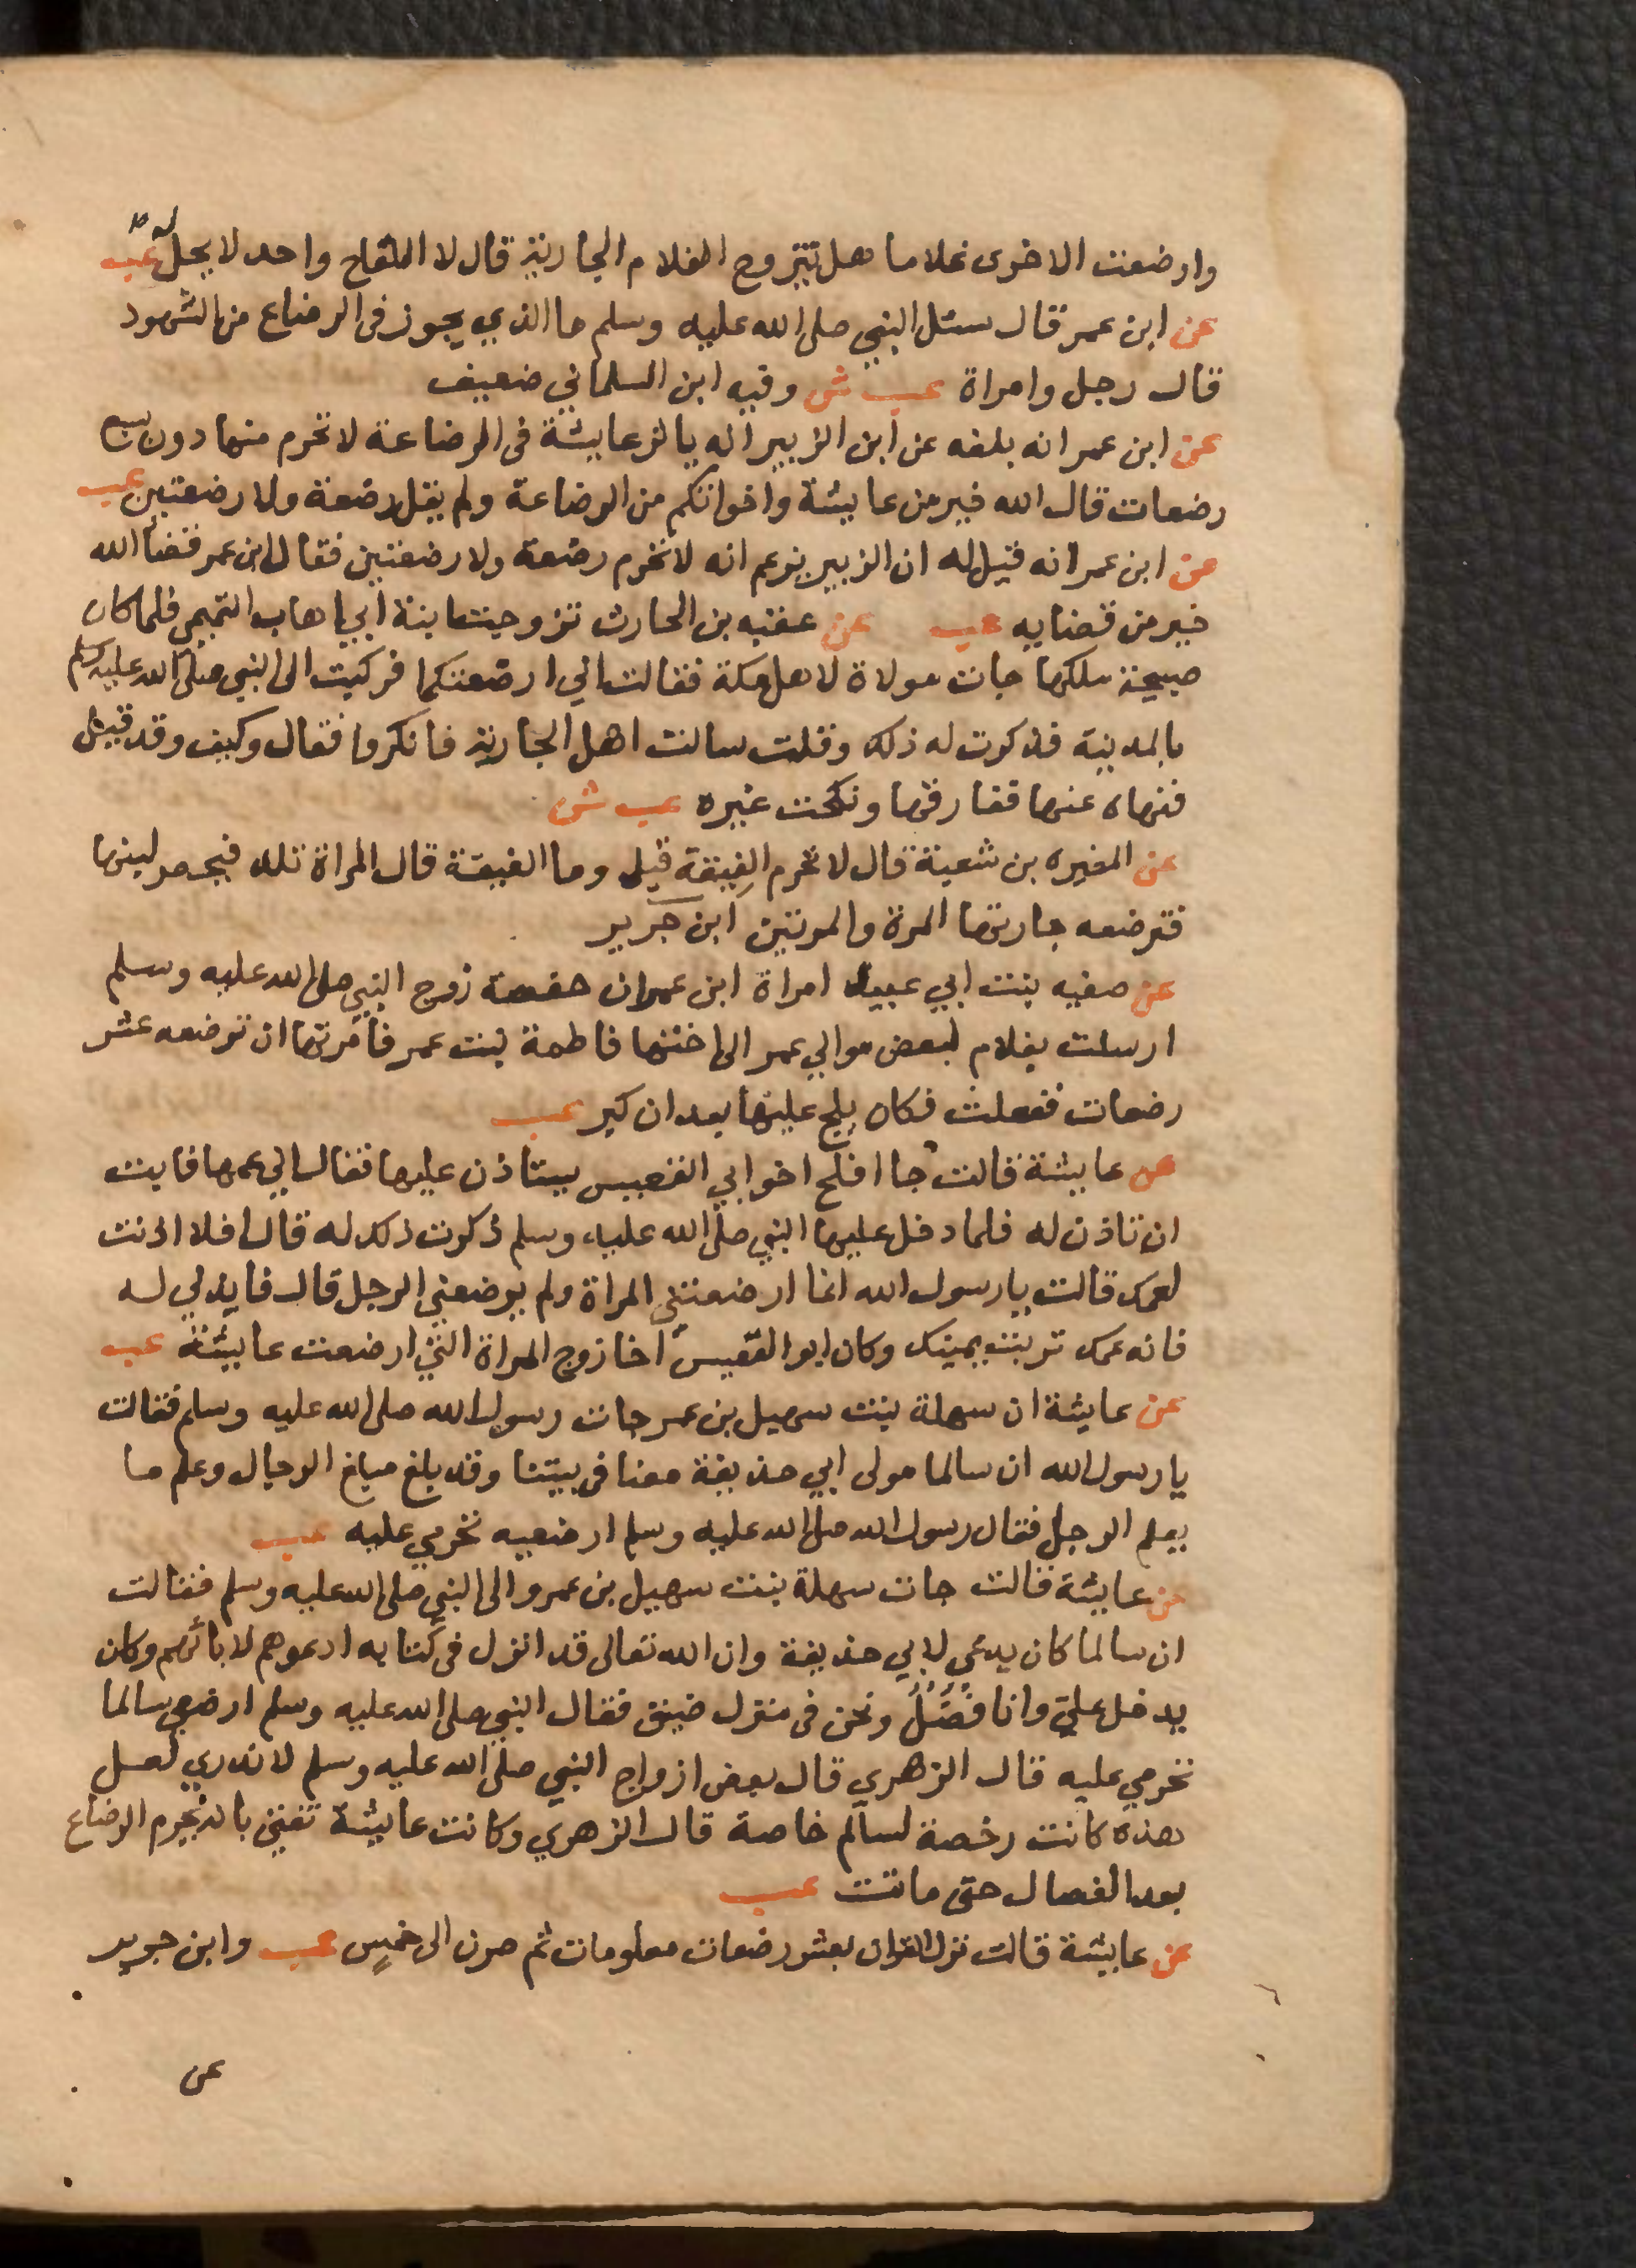 وارضعت الاخرى غلاما هل تتزوج الغلام الجارية قال لا اللقاح واحد لا يحل له عب
عن ابن عمر قال سئل النبي صلى الله عليه وسلم ما الذي يجوز فى الرضاع من الشهود
قال رجل وامراة عب ش وفيه ابن السلماني ضعيف
عن ابن عمر انه بلغه عن ابن الزبير انه ياثر عايشة فى الرضاعة لا تحرم منها دون سبع
رضعات قال الله خير من عايشة واخواتكم من الرضاعة ولم يقل رضعة ولا رضعتين عب
عن ابن عمر انه قيل له ان الزبير يزعم انه لا تحرم رضعة ولا رضعتين فقال ابن عمر قضا الله
خير من قضايه عب عن عقبه بن الحارث تزوجت ابنة ابي اهاب التميمي فلما كان
صبيحة ملكها جات مولاة لاهل مكة فقالت اني ارضعتكما فركبت الى النبي صلى الله عليه وسلم
بالمدينة فذكرت له ذلك وقلت سالت اهل الجارية فانكروا فقال وكيف وقد قيل
فنهاه عنها ففارقها ونكحت غيره عب ش
عن المغيره بن شعبة قال لا تحرم الغيقة قيل وما الغيقة قال المراة تلد فيحصر لبنها
فترضعه جارتها المرة والمرتين ابن جرير
عن صفيه بنت ابي عبيد امراة ابن عمر ان حفصة زوج النبي صلى الله عليه وسلم
ارسلت بغلام لبعض موالي عمر الى اختها فاطمة بنت عمر فامرتها ان ترضعه عشر
رضعات ففعلت فكان يلج عليها بعد ان كبر عب
عن عايشة قالت جا افلح اخو ابي القعيس يستاذن عليها فقال اني عمها فابت
ان تاذن له فلما دخل عليها النبي صلى الله عليه وسلم ذكرت ذلك له قال افلا اذنت
لعمك قالت يا رسول الله انما ارضعتني المراة ولم يرضعني الرجل قال فايذني له
فانه عمك تربت يمينك وكان ابو القعيس اخا زوج المراة التي ارضعت عايشة عب
عن عايشة ان سهلة بنت سهيل بن عمر جات رسول الله صلى الله عليه وسلم فقالت
يا رسول الله ان سالما مولى ابي حذيفة معنا فى بيتنا وقد بلغ مبلغ الرجال وعلم ما
يعلم الرجل فقال رسول الله صلى الله عليه وسلم ارضعيه تحرمي عليه عب
عن عايشة قالت جات سهلة بنت سهيل بن عمرو الى النبي صلى الله عليه وسلم فقالت
ان سالما كان يدعى لابي حذيفة وان الله تعالى قد انزل فى كتابه ادعوهم لابائهم وكان
يدخل علي وانا فضل ونحن فى منزل ضيق فقال النبي صلى الله عليه وسلم ارضعي سالما
تحرمي عليه قال الزهري قال بعض ازواج النبي صلى الله عليه وسلم لا ندري لعل
هذه كانت رخصة لسالم خاصة قال الزهري وكانت عايشة تفتي بانه يحرم الرضاع
بعد الفصال حتى ماتت عب
عن عايشة قالت نزل القران بعشر رضعات معلومات ثم صرن الى خمس عب وابن جرير
عن